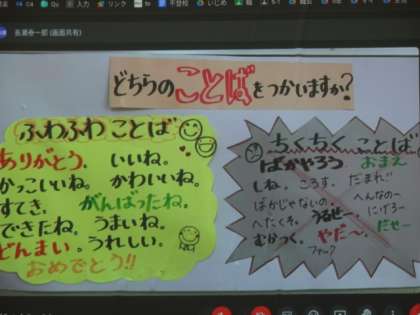 入力
リンク
不登校
いじめ
(画面共有)
どちらのことばをつかいますか?
ふわふわことば
ありがとう、いいね。
かっこいいね。かわいいね。
すてき。がんばったね。
できたね。うまいね。
どんまい。うれしい。
おめでとう!!
ちくちくことば
ばかやろう おまえ
しね。ころす。だまれ!!
ばかじゃないの。へんなの〜
へたくそ。うるせー。にげろー
むかつく。やだ〜。だせー
ファック